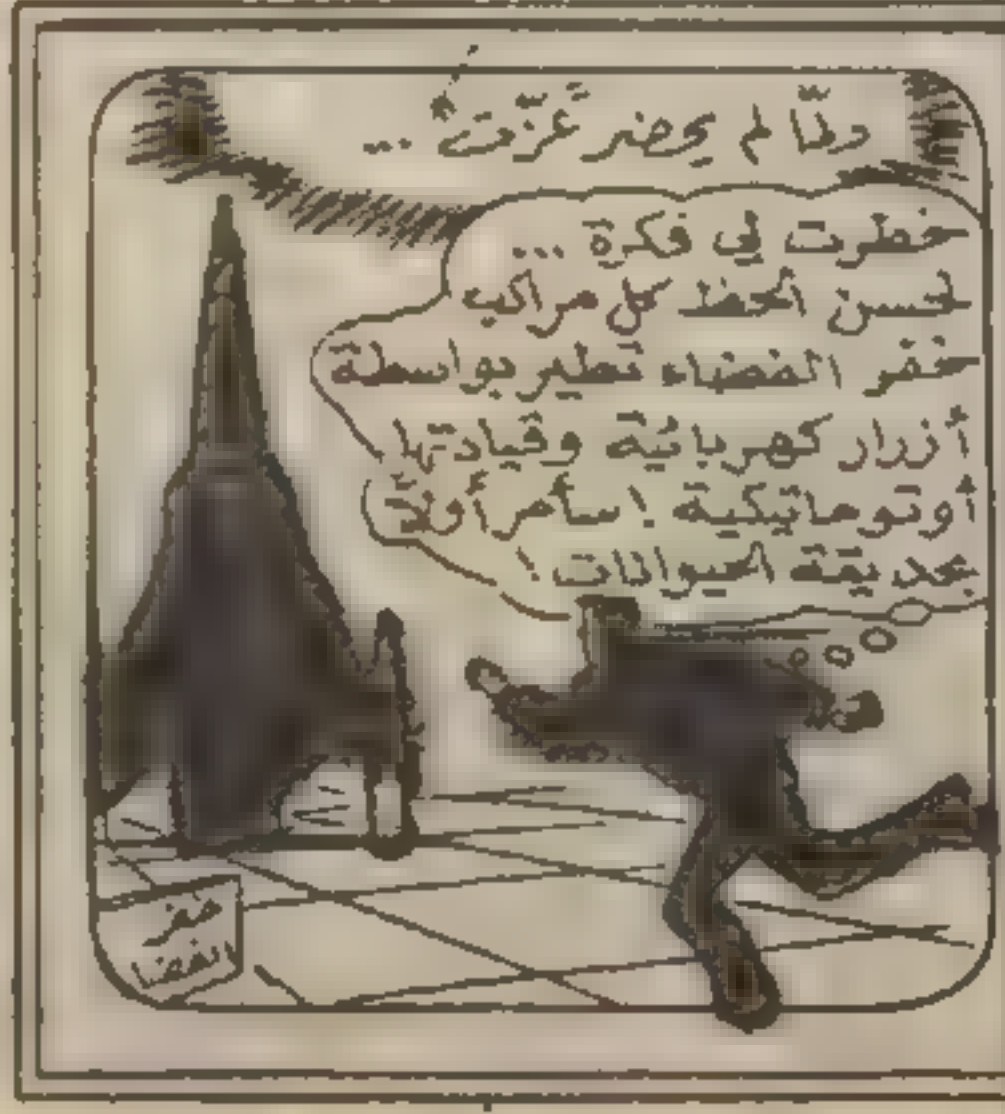 ولمّا لم يحضر عزّت ...
خطرت لي فكرة ...
لحسن الحظ كل مراكب
خفر الفضاء تطير بواسطة
أزرار كهربائية وقيادتها
أوتوماتيكية ! سأمر أولاً
بحديقة الحيوانات !
خفر
الفضا